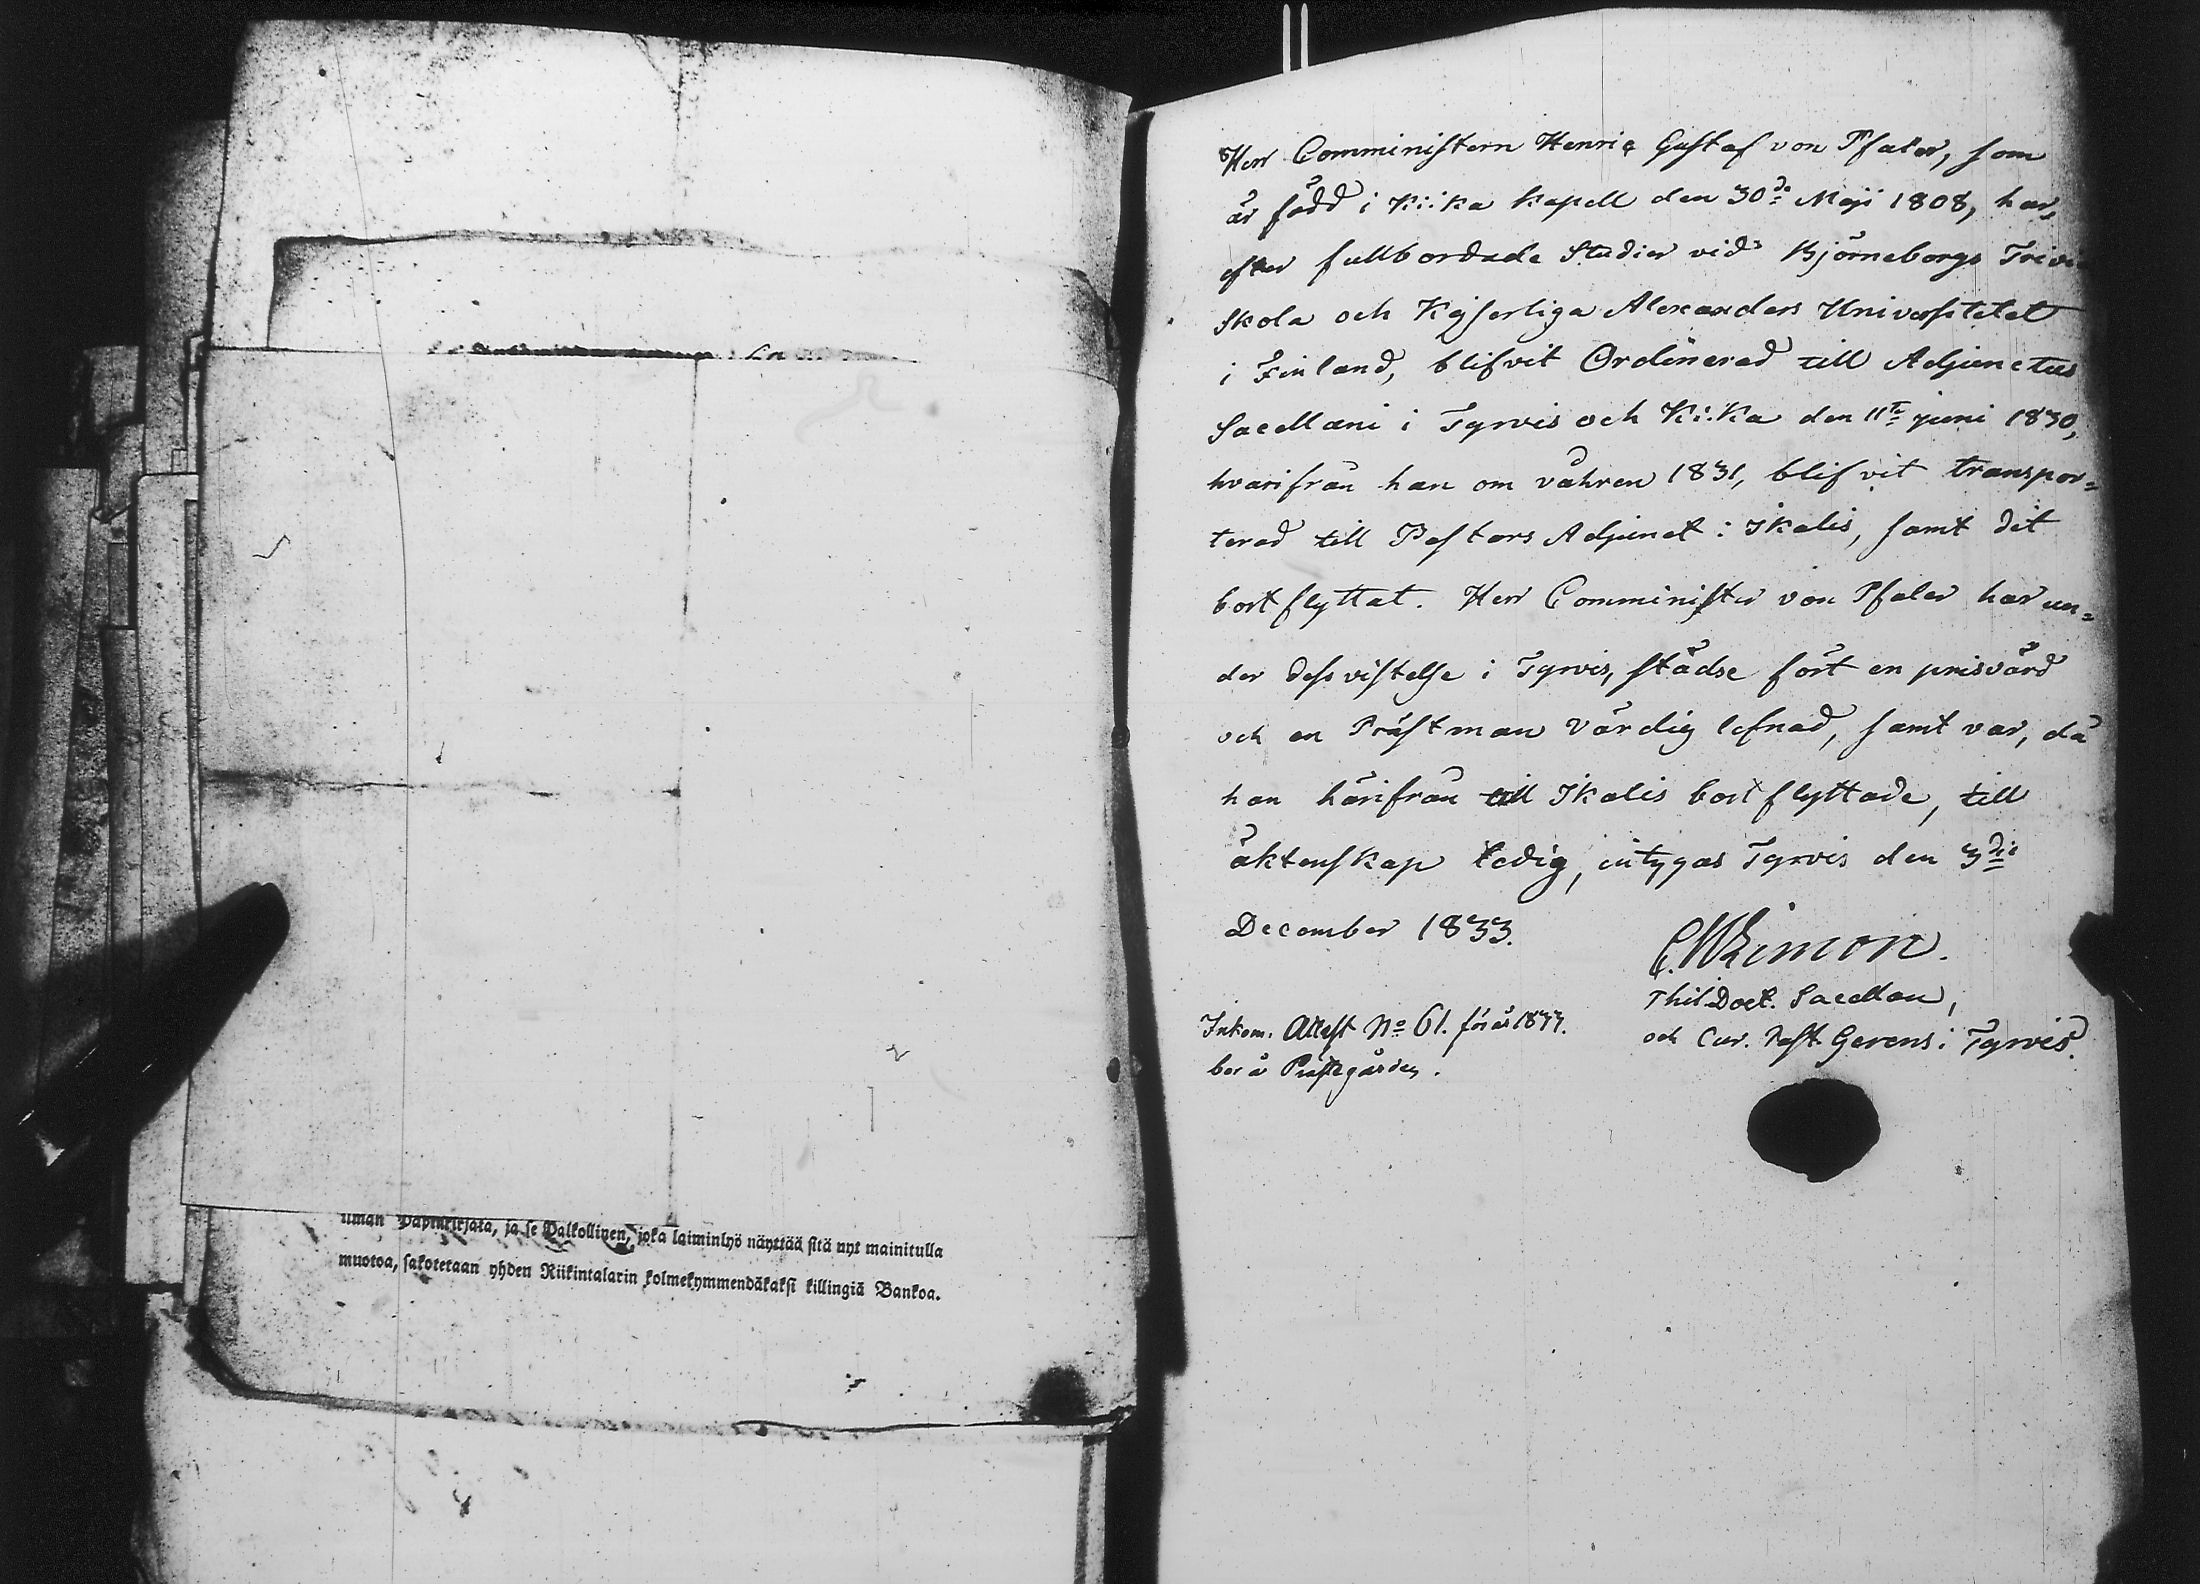 ilman Papinkirjata, ja se Palkollinen, joka laiminlyö näyttää sitä nyt mainitulla
muotoa, sakotetaan yhden Riikintalarin kolmekymmendäkaksi killingiä Bankoa.
Herr Comministern Henric Gustaf von Pfaler, som
är född i Kiika Kapell den 30de Maji 1808, har,
efter fullbordade Studier vid Björneborgs Trivi
Skola och Kejserliga Alexanders Universitetet
i Finland, blifvit Ordinerad till Adjunctus
Sacellani i Tyrvis och Kiika den 11te juni 1830,
hvarifrån han om våhren 1831, blifvit transpor=
terad till Pastors Adjunct i Ikalis, samt dit
bortflyttat. Herr Comminister von Pfaler har un=
der dess vistelse i Tyrvis, städse fört en prisvärd
och en Prästman värdig lefnad, samt var, då
han härifrån till Ikalis bortflyttade, till
äktenskap ledig, intygas Tyrvis den 3die
December 1833.
C. W. Limon.
Phil. Doct. Sacellan,
och Cur. Past. Gerens i Tyrvis.
Inkom. Attest No 61. för år 1833.
bor å Prästegården.